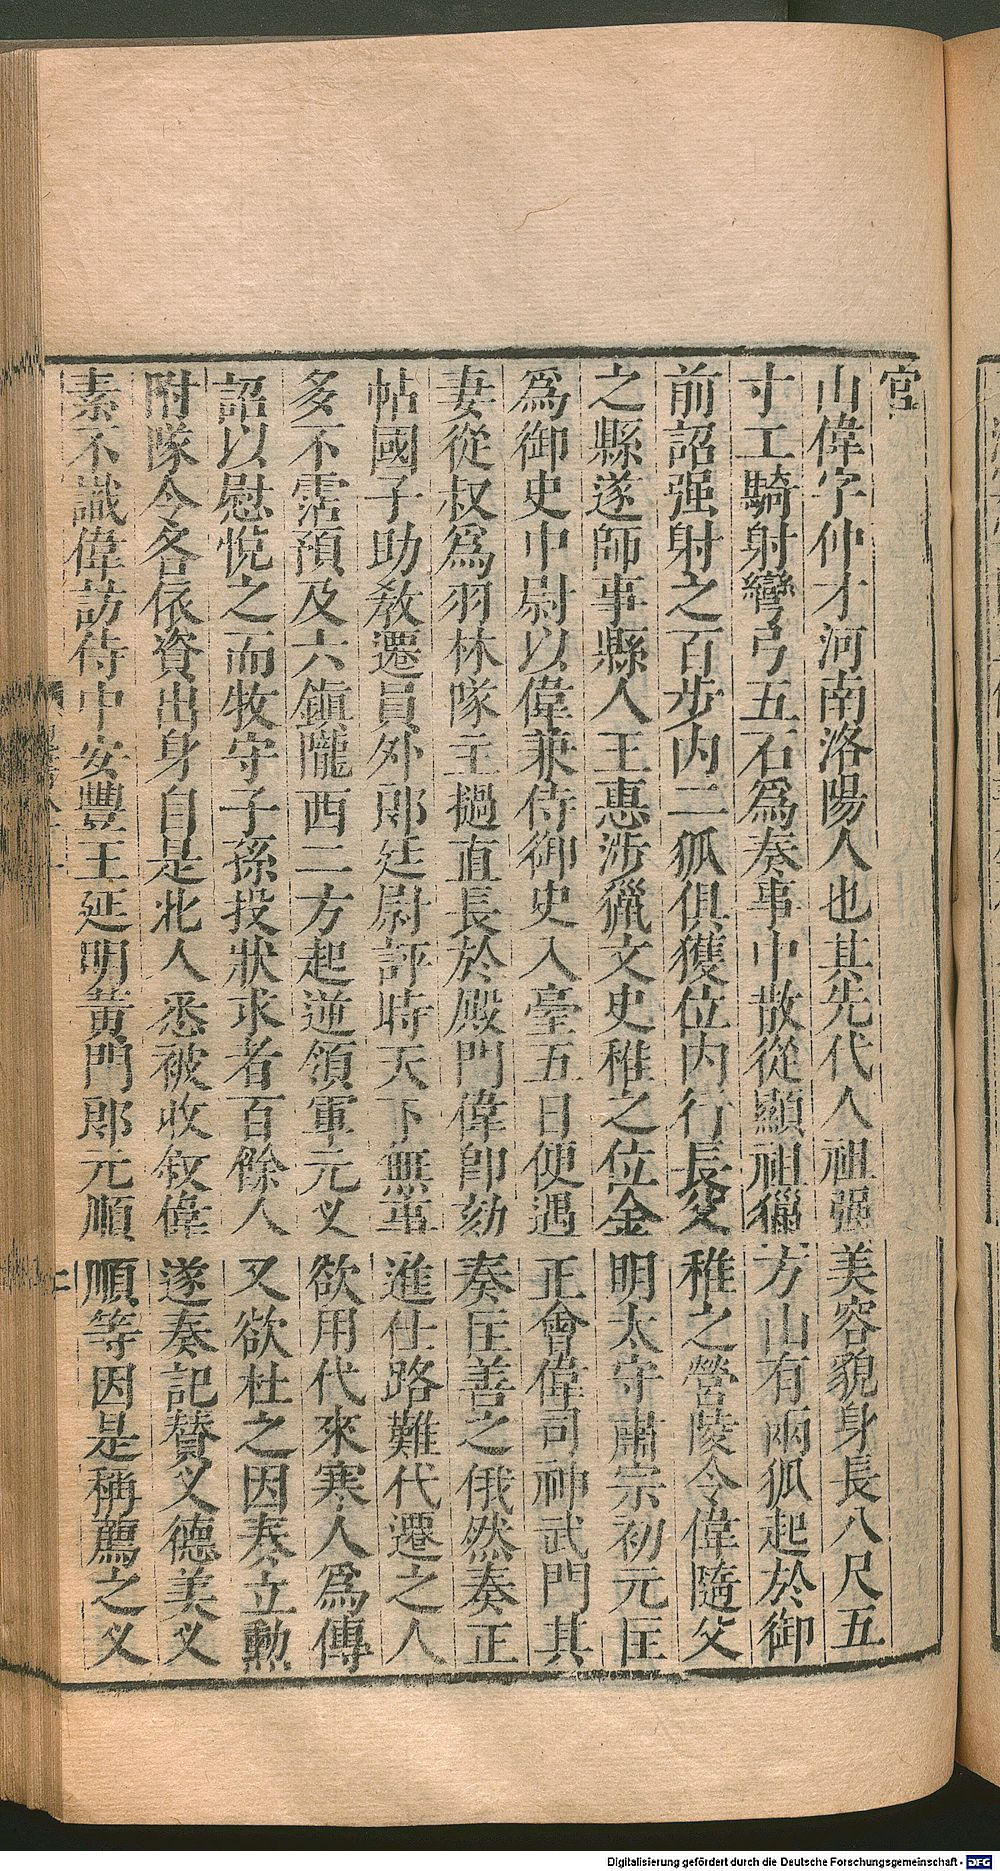 官
山偉字仲才河南洛陽人也其先代人祖强美容貌身長八尺五
寸工騎射彎弓五石爲奏事中散從顯祖獵方山有兩狐起於御
前詔强射之百步内二狐俱獲位内行長父稚之營陵令偉隨父
之縣遂師事縣人王惠涉獵文史稚之位金明太守肅宗初元匡
爲御史中尉以偉兼侍御史入臺五日便遇正會偉司神武門其
妻從叔爲羽林隊主撾直長於殿門偉卽劾奏匡善之俄然奏正
帖國子助敎遷員外郎廷尉評時天下無事進仕路難代遷之人
多不霑預及六鎭隴西二方起逆領軍元乂欲用代來寒人爲傳
詔以慰悅之而牧守子孫投狀求者百餘人又欲杜之因奏立勳
附隊令各依資出身自是北人悉被收敘偉遂奏記贊乂德美乂
素不識偉訪侍中安豐王延明黃門郎元順順等因是稱薦之乂
Digitalisierung gefördert durch die Deutsche Forschungsgemeinschaft - DFG